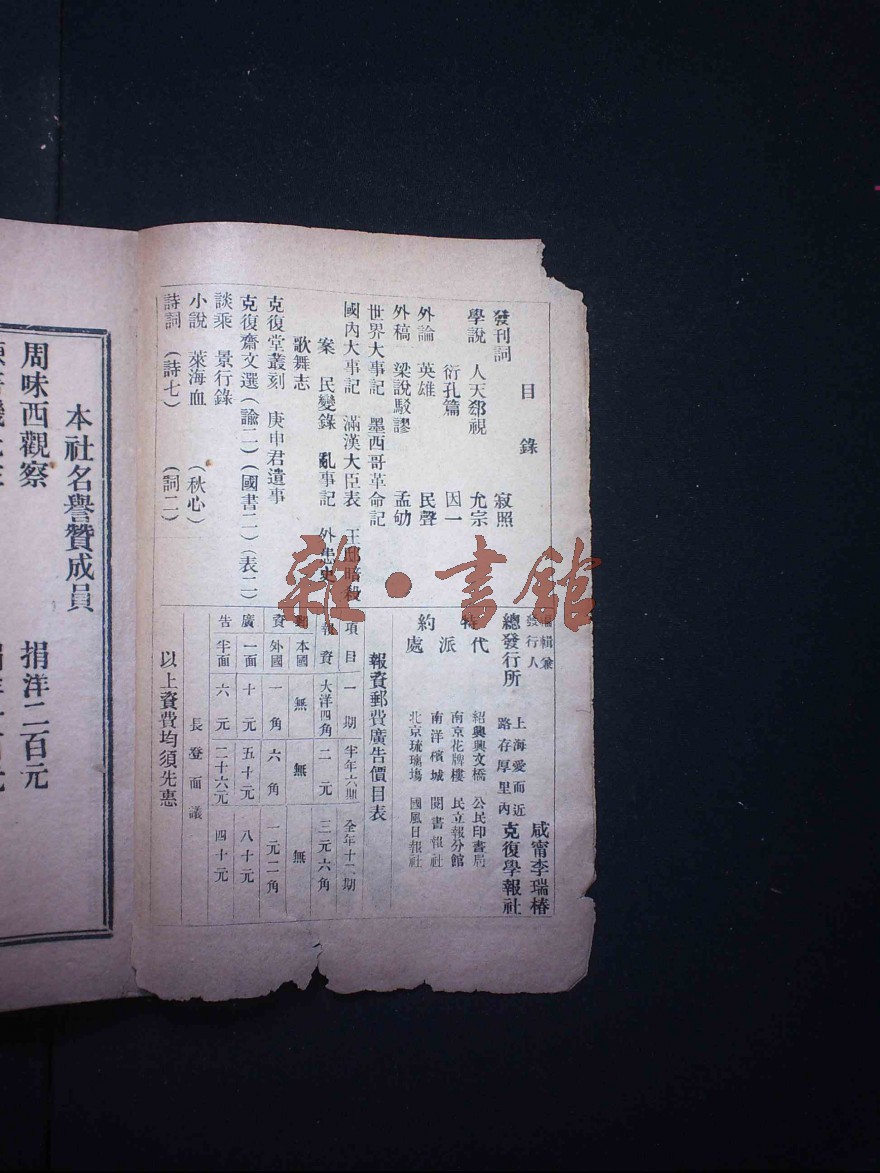 目錄
發刊詞 寂照
學說 人天郄視 允宗
衍孔篇 因一
外論 英雄 民聲
外稿 梁說駁謬 孟劬
世界大事記 墨西哥革命記
國內大事記 滿漢大臣表 王邸暗殺
案 民變錄 亂事記 外患史
歌舞志
克復堂叢刻 庚申君遺事
克復齋文選(諭二)(國書二)(表二)
談乘 景行錄
小說 萊海血 (秋心)
詩詞 (詩七) (詞二)
編輯兼
發行人 咸甯李瑞椿
總發行所 上海愛而近
路存厚里內 克復學報社
特約代派處
紹興興文橋 公民印書局
南京花牌樓 民立報分館
南洋檳城 閱書報社
北京琉璃塲 國風日報社
報資郵費廣告價目表
項目 一期 半年六期 全年十二期
報資 大洋四角 二元 三元六角
郵資 本國 無 無 無
外國 一角 六角 一元二角
廣告 一面 十元 五十元 八十元
半面 六元 二十六元 四十元
長登面議
以上資費均須先惠
本社名譽贊成員
周味西觀察 捐洋二百元
雜·書館